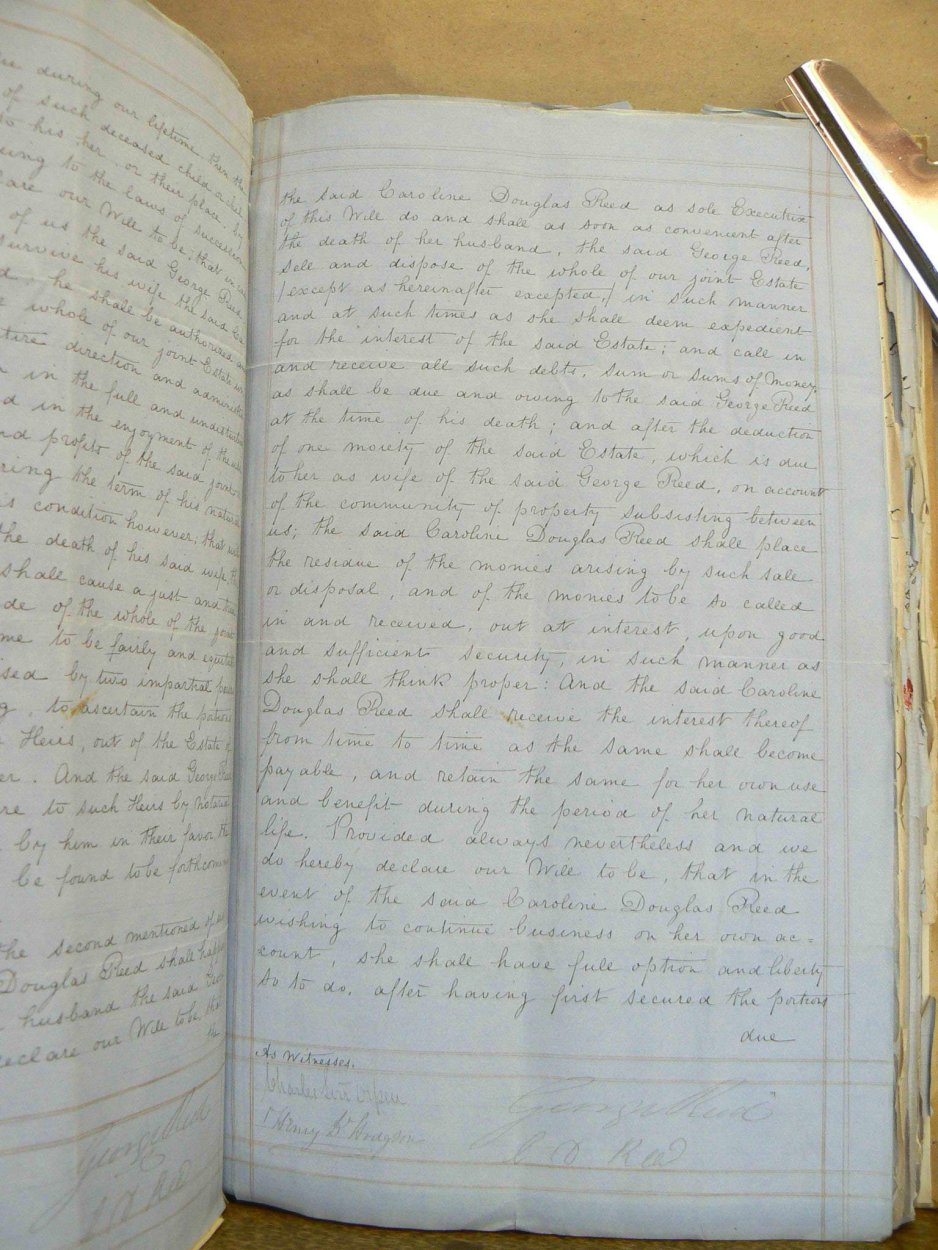 u during our lifetime then the
of such deceased child or
to his her or their place by
ing to the laws of succession
are our Will to be, that in
of us the said George Reed
survive his wife the said
he shall be authorized
whole of our joint Estate
tire direction and
in the full and
d in the enjoyment of the
nd profits of the said joint
ring the term of his natural
is condition however, that
the death of his said wife
shall cause a just and true
de of the whole of the joint
me to be fairly and
ised by two impartial
g, to ascertain the
Heirs, out of the Estate of
er. And the said George Reed
re to such Heirs by
by him in their favor
be found to be forthcoming
the second mentioned of us
Douglas Reed shall happen
husband the said
eclare our Will to be, that
the
George Reed
C D Reed
the said Caroline Douglas Reed as sole Executrix
of this Will do and shall as soon as convenient after
the death of her husband, the said George Reed,
sell and dispose of the whole of our joint Estate
/except as hereinafter excepted,/ in such manner
and at such times as she shall deem expedient
for the interest of the said Estate; and call in
and receive all such debts, sum or sums of Money,
as shall be due and owing to the said George Reed
at the time of his death; and after the deduction
of one moiety of the said Estate, which is due
to her as wife of the said George Reed, on account
of the community of property subsisting between
us; the said Caroline Douglas Reed shall place
the residue of the monies arising by such sale
or disposal, and of the monies to be so called
in and received, out at interest, upon good
and sufficient security, in such manner as
she shall think proper: And the said Caroline
Douglas Reed shall receive the interest thereof
from time to time as the same shall become
payable, and retain the same for her own use
and benefit during the period of her natural
life. Provided always nevertheless and we
do hereby declare our Will to be, that in the
event of the said Caroline Douglas Reed
wishing to continue business on her own ac=
count, she shall have full option and liberty
so to do, after having first secured the portions
due
As Witnesses.
Charles
Henry Hodgson
George Reed
C. D. Reed